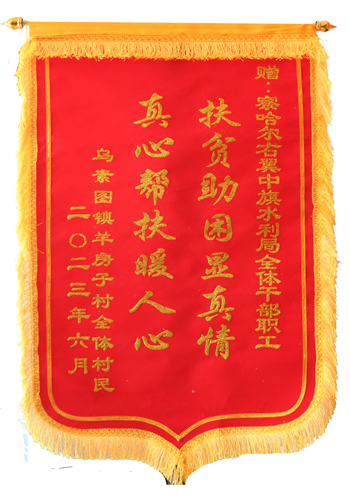 赠：察哈尔右翼中旗水利局全体干部职工
扶贫助困显真情
真心帮扶暖人心
乌素图镇羊房子村全体村民
二〇二三年六月